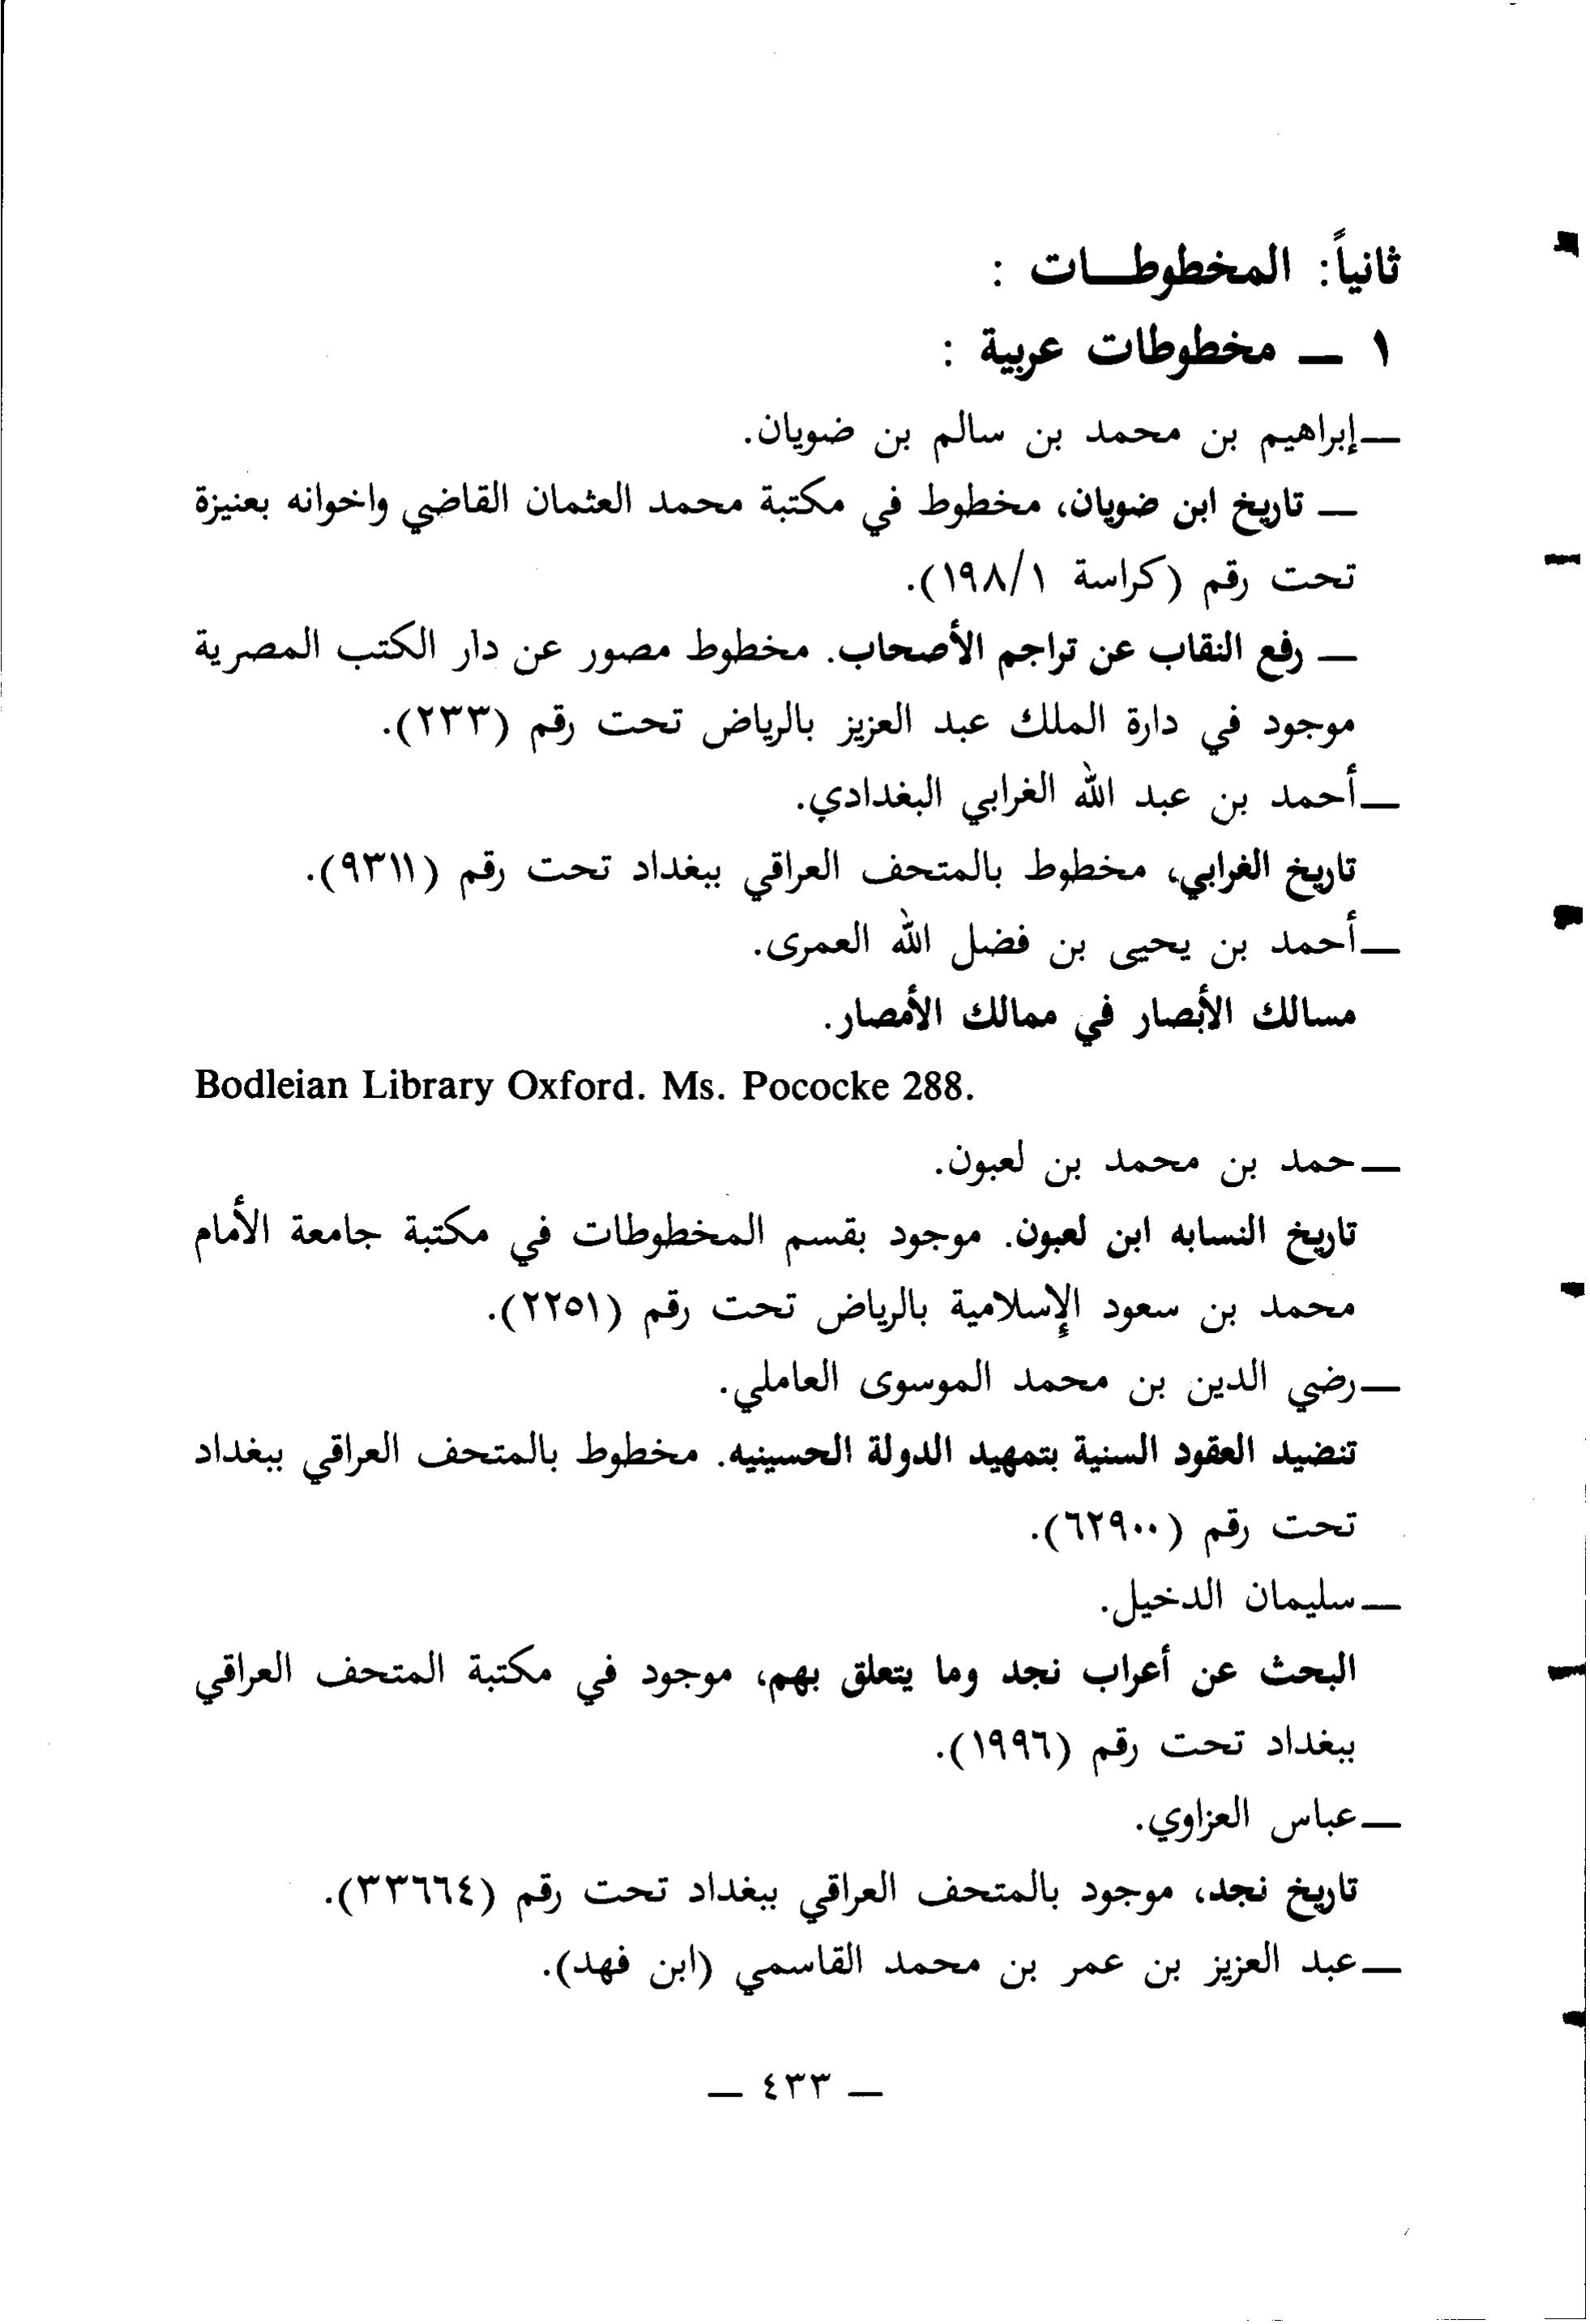 ثانياً: المخطوطـــات :
١ ـــ مخطوطات عربية :
ــ إبراهيم بن محمد بن سالم بن ضويان.
ــ تاريخ ابن ضويان، مخطوط في مكتبة محمد العثمان القاضي واخوانه بعنيزة
تحت رقم (كراسة ١٩٨/١).
ــ رفع النقاب عن تراجم الأصحاب. مخطوط مصور عن دار الكتب المصرية
موجود في دارة الملك عبد العزيز بالرياض تحت رقم (٢٣٣).
ــ أحمد بن عبد الله الغرابي البغدادي.
تاريخ الغرابي، مخطوط بالمتحف العراقي ببغداد تحت رقم (٩٣١١).
ــ أحمد بن يحيى بن فضل الله العمرى.
مسالك الأبصار في ممالك الأمصار.
Bodleian Library Oxford. Ms. Pococke 288.
ــ حمد بن محمد بن لعبون.
تاريخ النسابه ابن لعبون. موجود بقسم المخطوطات في مكتبة جامعة الأمام
محمد بن سعود الإسلامية بالرياض تحت رقم (٢٢٥١).
ــ رضي الدين بن محمد الموسوى العاملي.
تنضيد العقود السنية بتمهيد الدولة الحسينيه. مخطوط بالمتحف العراقي ببغداد
تحت رقم (٦٢٩٠٠).
ــ سليمان الدخيل.
البحث عن أعراب نجد وما يتعلق بهم، موجود في مكتبة المتحف العراقي
ببغداد تحت رقم (١٩٩٦).
ــ عباس العزاوي.
تاريخ نجد، موجود بالمتحف العراقي ببغداد تحت رقم (٣٣٦٦٤).
ــ عبد العزيز بن عمر بن محمد القاسمي (ابن فهد).
ــ ٤٣٣ ــ